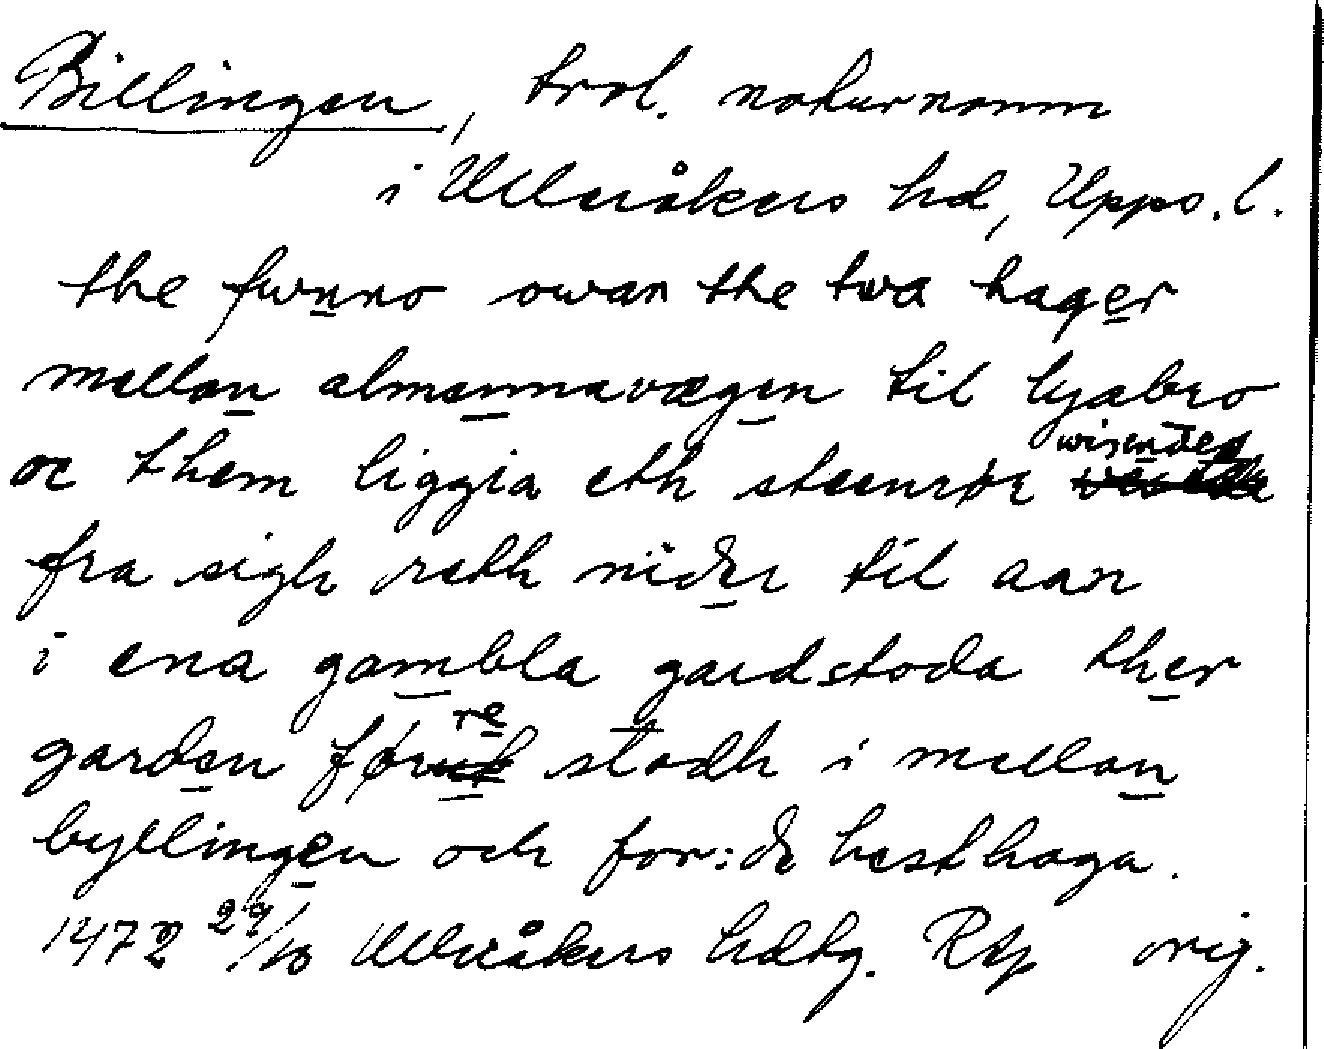 Billingen, trol. naturnamn
i Ulleråkers hd, Upps. l.
the fwnno owan the twa hager
mellan almennavægen til lyabro
oc them liggia eth steenrør wisendes
fra sigh reth nider til aan
i ena gambla gardstoda ther
garden førre stodh i mellan
byllingen och for:de hesthaga.
1472 29/10 Ulleråkers hdtg. Rap orig.